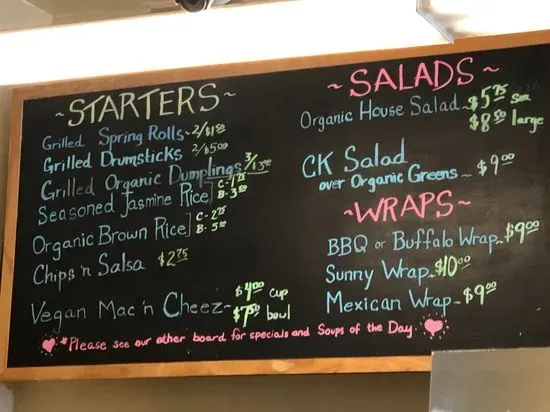 ~STARTERS~
Grilled Spring Rolls~ 2/$1.50
Grilled Drumsticks 2/$5.00
Grilled Organic Dumplings 3/
Seasoned Jasmine Rice] C-1.75 B-3.50
Organic Brown Rice] C-2.75 B-5.00
Chips 'n Salsa $2.75
Vegan Mac 'n Cheez~ $4.00 cup
$7.50 bowl
~SALADS~
Organic House Salad~ $5.75 sm
$8.50 large
CK Salad
over Organic Greens~ $9.00
~WRAPS~
BBQ or Buffalo Wrap~ $9.00
Sunny Wrap~ $10.00
Mexican Wrap~ $9.00
*Please see our other board for specials and Soups of the Day.